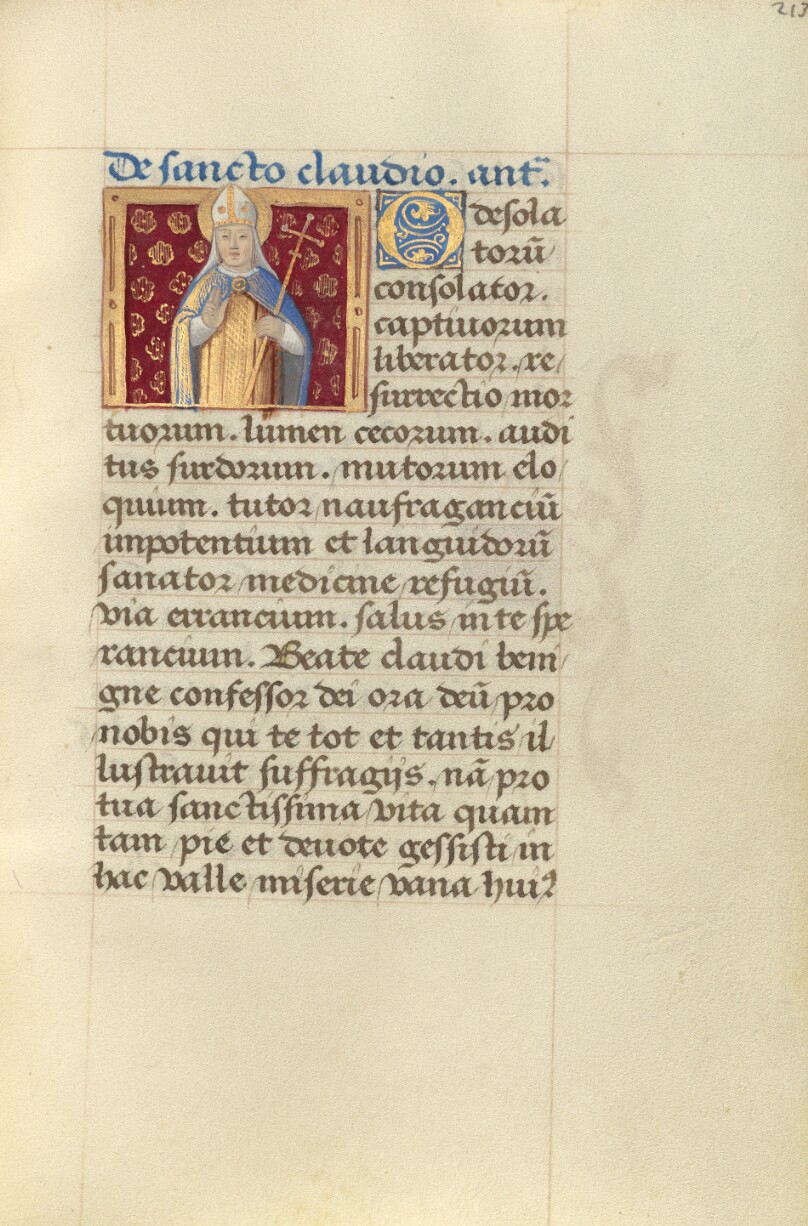 213
De sancto claudio. ant̄.
O desola
torū
consolator.
captiuorum
liberator. re
surrectio mor
tuorum. lumen cecorum. audi
tus surdorum. mutorum elo
quium. tutor naufraganciū
impotentium et languidorū
sanator medicine refugiū.
via errancium. salus in te spe
rancium. Beate claudi beni
gne confessor dei ora deū pro
nobis qui te tot et tantis il
lustrauit suffragijs. nā pro
tua sanctissima vita quam
tam pie et deuote gessisti in
hac valle miserie vana huiꝰ